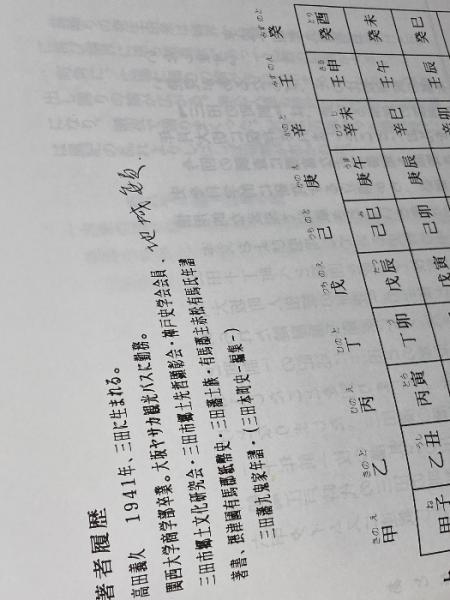 著者履歴
高田義久 1941年、三田に生まれる。
関西大学商学部卒業。大阪ヤサカ観光バスに勤務。
三田市郷土文化研究会・三田市郷土先哲顕彰会・神戸史学会会員、地域
著書、摂津国有馬郡紙幣史・三田藩士族・有馬郡主赤松有馬氏年譜
三田藩九鬼家年譜・(三田本町史ー編集ー)
きのえ きのと ひのえ ひのと つちのえ つちのと かのえ かのと みずのえ みずのと
甲 乙 丙 丁 戊 己 庚 辛 壬 癸
ね うし とら う たつ み うま ひつじ さる とり
甲子 乙丑 丙寅 丁卯 戊辰 己巳 庚午 辛未 壬申 癸酉
戊寅 己卯 庚辰 辛巳 壬午 癸未
辛卯 壬辰 癸巳